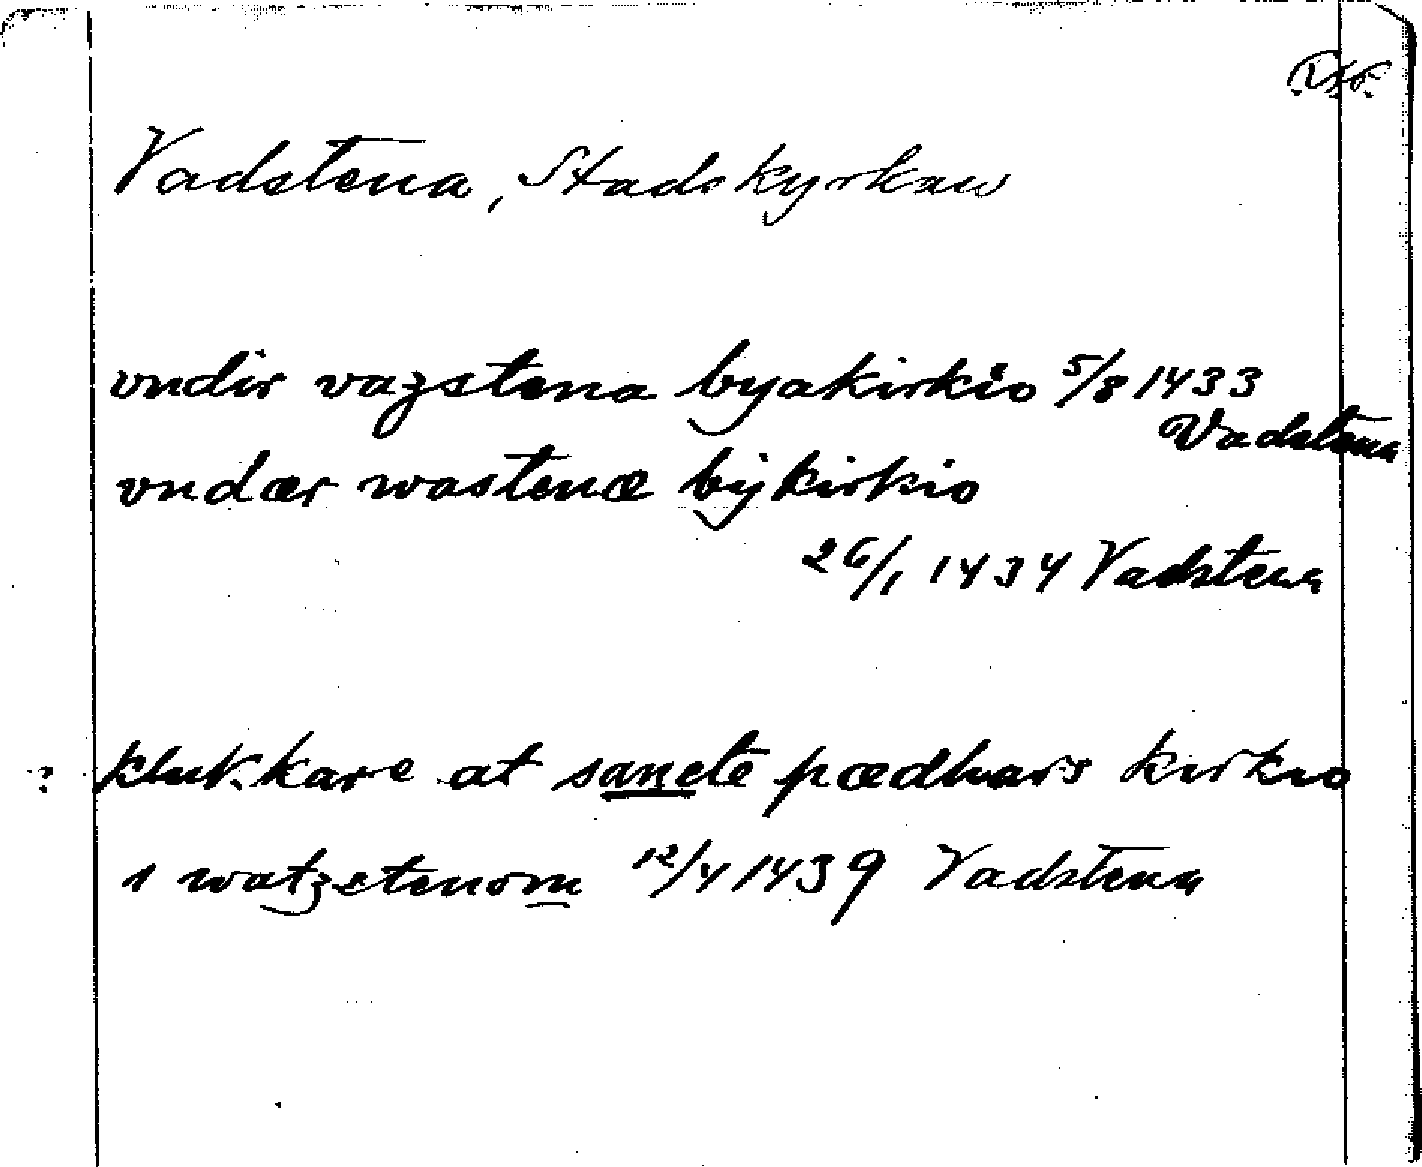 Vadstena, Stadskyrkan
vndir vazstena byakirkio 5/8 1433
Vadstena
vndær wastenæ bykirkio
26/1 1434 Vadstena
? klukkare at sancte pædhars kirkio
i watzstenom 12/4 1439 Vadstena